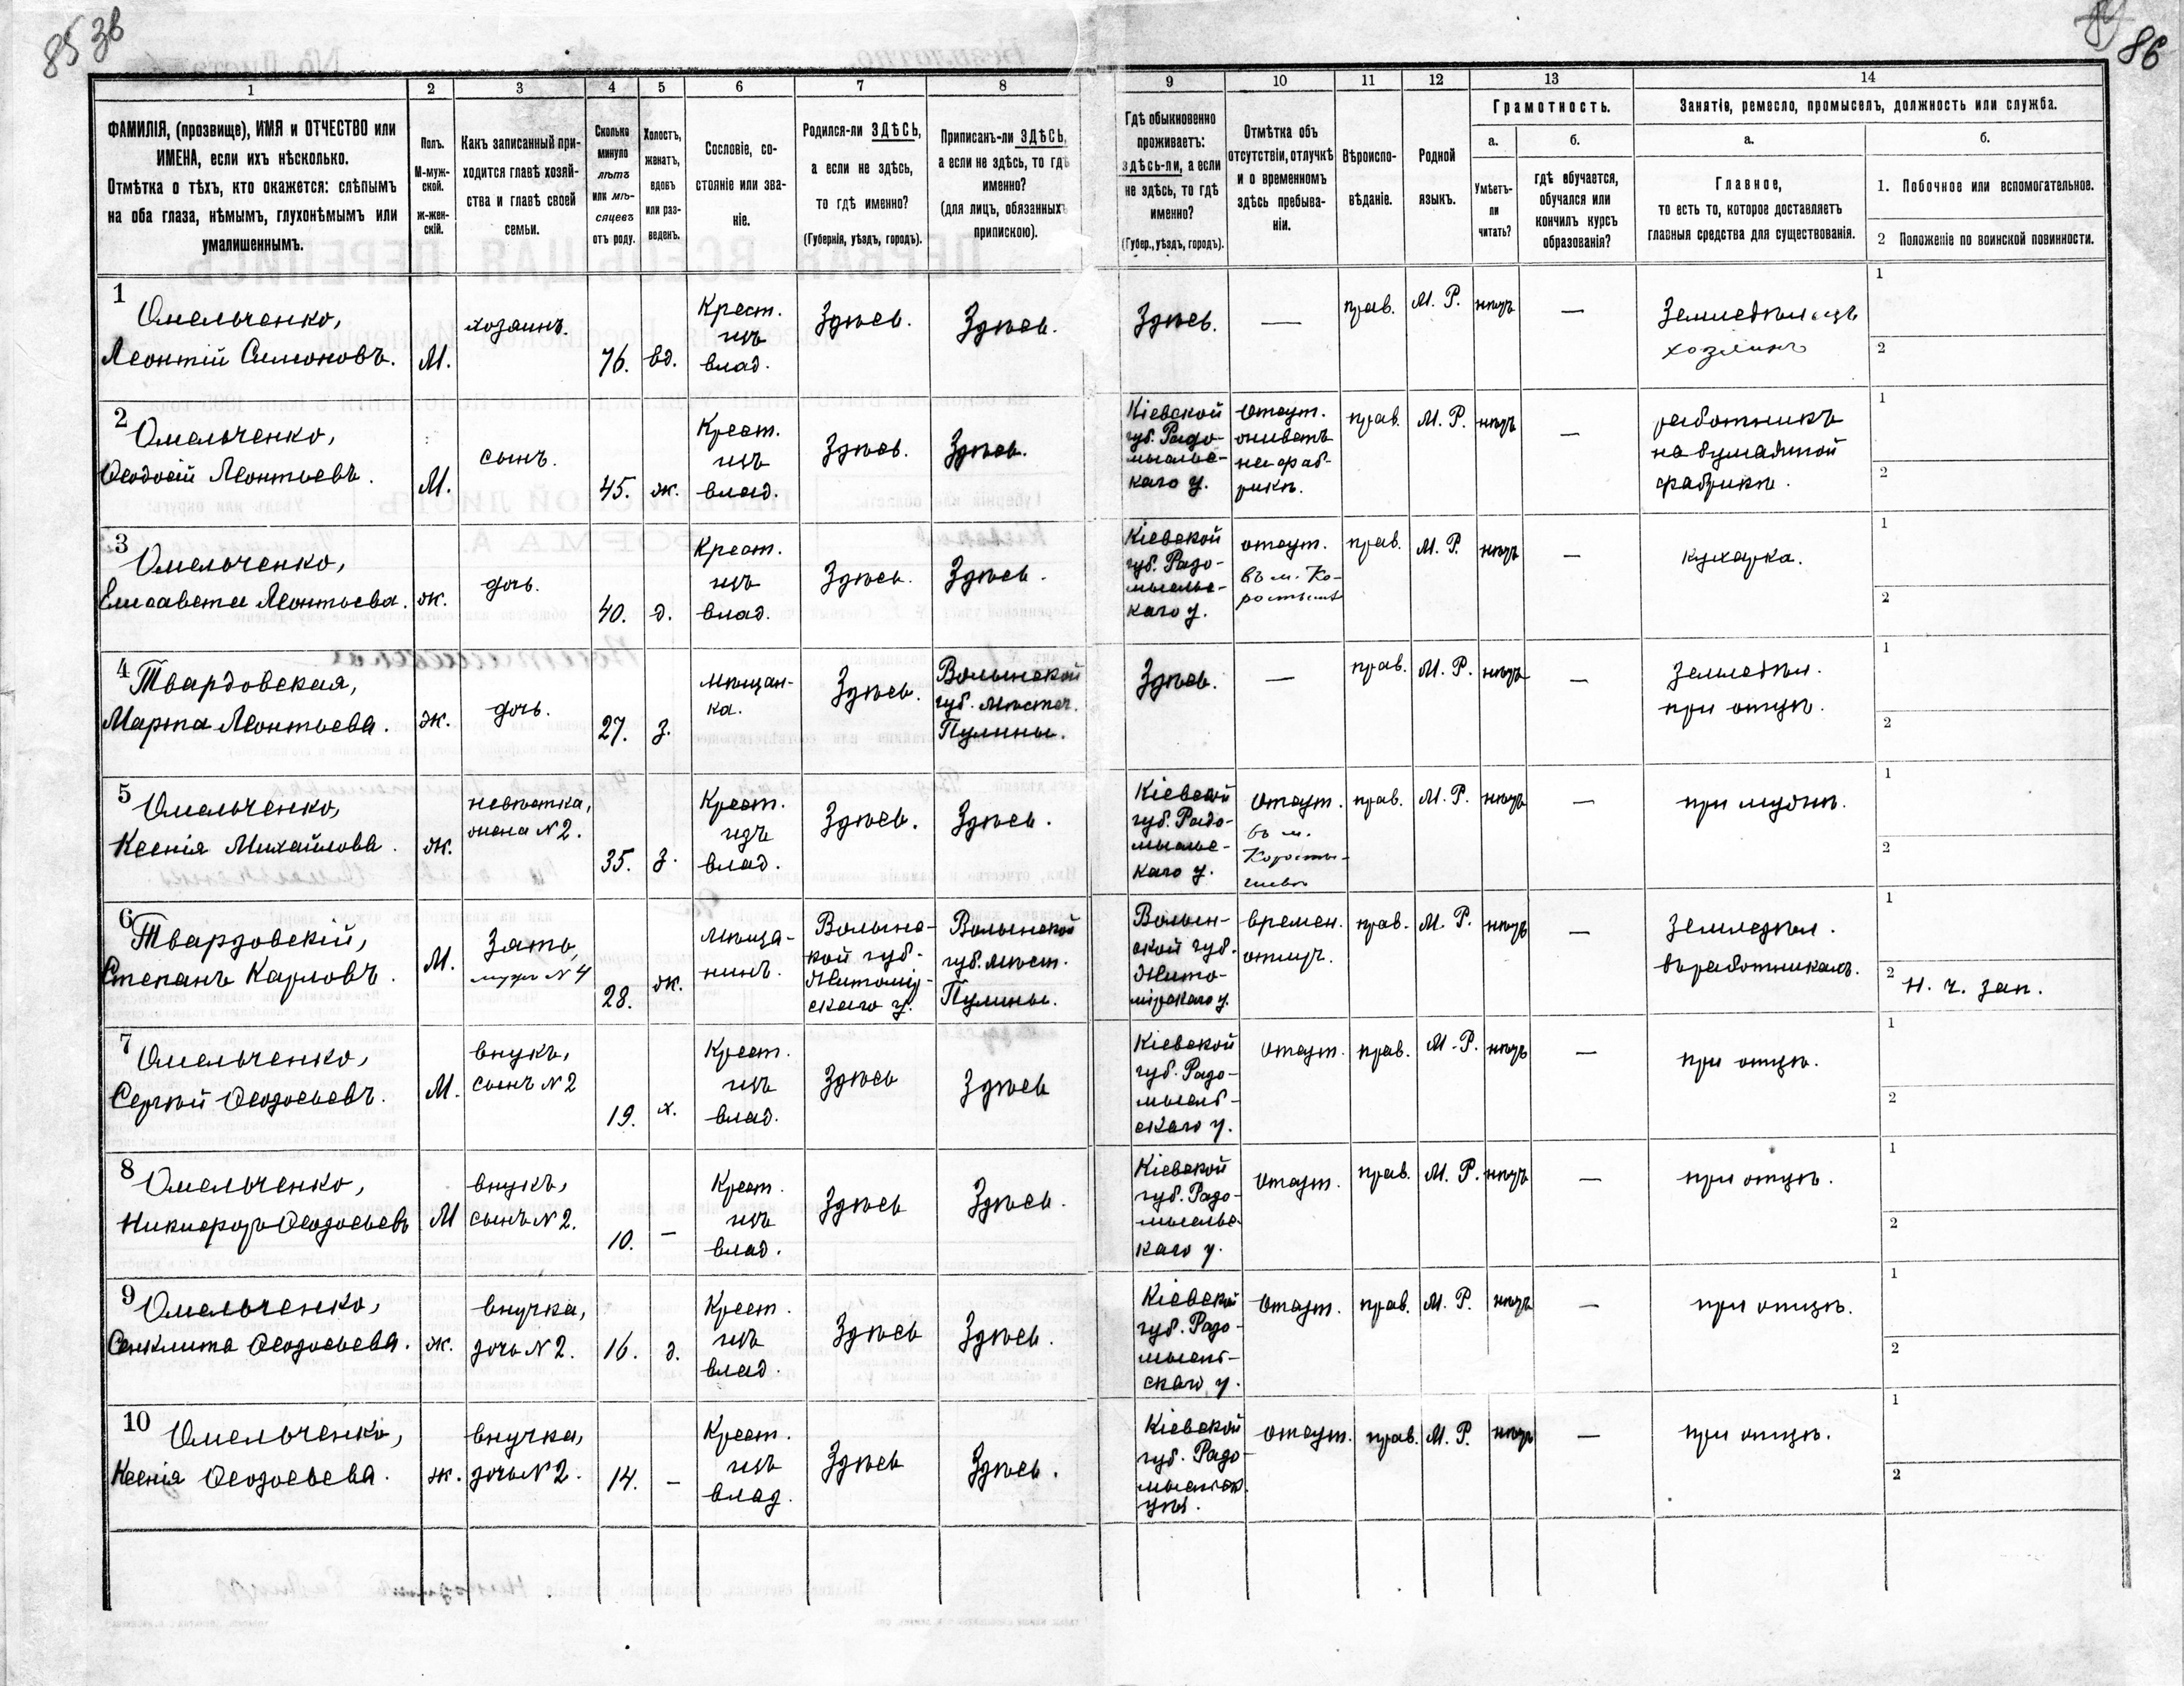 85 зв
86
1
2
3
4
5
6
7
8
9
10
11
12
13
14
ФАМИЛІЯ, (прозвище), ИМЯ и ОТЧЕСТВО или
ИМЕНА, если ихъ нѣсколько.
Отмѣтка о тѣхъ, кто окажется: слѣпымъ
на оба глаза, нѣмымъ, глухонѣмымъ или
умалишеннымъ.
Полъ.
М-муж-
ской.
ж-жен-
скій.
Какъ записанный при-
ходится главѣ хозяй-
ства и главѣ своей
семьи.
Сколько
минуло
лѣтъ
или мѣ-
сяцевъ
отъ роду.
Холостъ,
женатъ,
вдовъ
или раз-
веденъ.
Сословіе, со-
стояніе или зва-
ніе.
Родился-ли ЗДѢСЬ,
а если не здѣсь,
то гдѣ именно?
(Губернія, уѣздъ, городъ).
Приписанъ-ли ЗДѢСЬ,
а если не здѣсь, то гдѣ
именно?
(для лицъ, обязанныхъ
припискою).
Гдѣ обыкновенно
проживаетъ:
здѣсь-ли, а если
не здѣсь, то гдѣ
именно?
(Губер., уѣздъ, городъ).
Отмѣтка объ
отсутствіи, отлучкѣ
и о временномъ
здѣсь пребыва-
ніи.
Вѣроиспо-
вѣданіе.
Родной
языкъ.
Грамотность.
а.
Умѣетъ-
ли
читать?
б.
гдѣ обучается,
обучался или
кончилъ курсъ
образованія?
Занятіе, ремесло, промыселъ, должность или служба.
а.
Главное,
то есть то, которое доставляетъ
главныя средства для существованія.
б.
1. Побочное или вспомогательное.
2 Положеніе по воинской повинности.
1
Омельченко,
Леонтій Симоновъ.
М.
хозяинъ.
76.
вд.
Крест.
изъ
влад.
Здѣсь.
Здѣсь.
Здѣсь.
—
прав.
М. Р.
нѣтъ
—
Земледѣлецъ
хозяинъ
1
2
2
Омельченко,
Ѳеодосій Леонтьевъ.
М.
сынъ.
45.
ж.
Крест.
изъ
влад.
Здѣсь.
Здѣсь.
Кіевской
губ. Радо-
мысльс-
каго у.
Отсут.
живетъ
на фаб-
рикѣ.
прав.
М. Р.
нѣтъ
—
работникъ
на бумажной
фабрикѣ.
1
2
3
Омельченко,
Елисавета Леонтьева.
ж.
дочь.
40.
д.
Крест.
изъ
влад.
Здѣсь.
Здѣсь.
Кіевской
губ. Радо-
мысльс-
каго у.
отсут.
въ м. Ко-
ростыш.
прав.
М. Р.
нѣтъ
—
кухарка.
1
2
4
Твардовская,
Марта Леонтьева.
ж.
дочь.
27.
з.
мѣщан-
ка.
Здѣсь.
Волынской
губ. мѣстеч.
Пулины.
Здѣсь.
—
прав.
М. Р.
нѣтъ
—
Земледѣл.
при отцѣ.
1
2
5
Омельченко,
Ксенія Михайлова.
ж.
невѣстка,
жена №2.
35.
з.
Крест.
изъ
влад.
Здѣсь.
Здѣсь.
Кіевской
губ. Радо-
мысльс-
каго у.
Отсут.
въ м.
Коросты-
шевѣ
прав.
М. Р.
нѣтъ
—
при мужѣ.
1
2
6
Твардовскій,
Степанъ Карловъ.
М.
Зять,
мужъ №4
28.
ж.
мѣща-
нинъ.
Волынс-
кой губ.
Житомір-
скаго у.
Волынской
губ. мѣст.
Пулины.
Волын-
ской губ.
Жито-
мірскаго у.
времен.
отлуч.
прав.
М. Р.
нѣтъ
—
Земледѣл.
въ работникахъ.
1
2 н. ч. зап.
7
Омельченко,
Сергѣй Ѳеодосьевъ.
М.
внукъ,
сынъ №2
19.
х.
Крест.
изъ
влад.
Здѣсь
Здѣсь
Кіевской
губ. Радо-
мысль-
скаго у.
Отсут.
прав.
М. Р.
нѣтъ
—
при отцѣ.
1
2
8
Омельченко,
Никифоръ Ѳеодосьевъ
М
внукъ,
сынъ №2.
10.
—
Крест.
изъ
влад.
Здѣсь
Здѣсь.
Кіевской
губ. Радо-
мысльс-
каго у.
Отсут.
прав.
М. Р.
нѣтъ
—
при отцѣ.
1
2
9
Омельченко,
Синклита Ѳеодосьева.
ж.
внучка,
дочь №2.
16.
д.
Крест.
изъ
влад.
Здѣсь
Здѣсь.
Кіевской
губ. Радо-
мысль-
скаго у.
Отсут.
прав.
М. Р.
нѣтъ
—
при отцѣ.
1
2
10
Омельченко,
Ксенія Ѳеодосьева.
ж.
внучка,
дочь №2.
14.
—
Крест.
изъ
влад.
Здѣсь
Здѣсь.
Кіевской
губ. Радо-
отсут.
прав.
М. Р.
нѣтъ
—
при отцѣ.
1
2